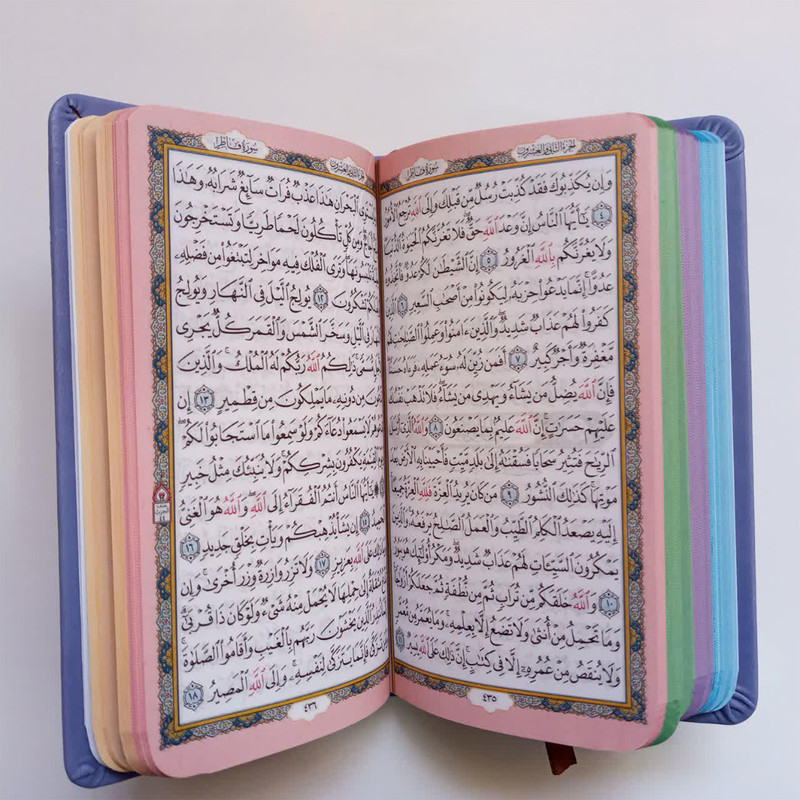 الجزء الثانى والعشرون
سورة فاطر
وَإِن يُكَذِّبُوكَ فَقَدْ كُذِّبَتْ رُسُلٌ مِّن قَبْلِكَ وَإِلَى ٱللَّهِ تُرْجَعُ ٱلْأُمُورُ
٤ يَٰٓأَيُّهَا ٱلنَّاسُ إِنَّ وَعْدَ ٱللَّهِ حَقٌّ فَلَا تَغُرَّنَّكُمُ ٱلْحَيَوٰةُ ٱلدُّنْيَا
وَلَا يَغُرَّنَّكُم بِٱللَّهِ ٱلْغَرُورُ ٥ إِنَّ ٱلشَّيْطَٰنَ لَكُمْ عَدُوٌّ فَٱتَّخِذُوهُ
عَدُوًّا إِنَّمَا يَدْعُوا۟ حِزْبَهُۥ لِيَكُونُوا۟ مِنْ أَصْحَٰبِ ٱلسَّعِيرِ ٦
كَفَرُوا۟ لَهُمْ عَذَابٌ شَدِيدٌ وَٱلَّذِينَ ءَامَنُوا۟ وَعَمِلُوا۟ ٱلصَّٰلِحَٰتِ لَهُم
مَّغْفِرَةٌ وَأَجْرٌ كَبِيرٌ ٧ أَفَمَن زُيِّنَ لَهُۥ سُوٓءُ عَمَلِهِۦ فَرَءَاهُ حَسَنًا
فَإِنَّ ٱللَّهَ يُضِلُّ مَن يَشَآءُ وَيَهْدِى مَن يَشَآءُ فَلَا تَذْهَبْ نَفْسُكَ
عَلَيْهِمْ حَسَرَٰتٍ إِنَّ ٱللَّهَ عَلِيمٌۢ بِمَا يَصْنَعُونَ ٨ وَٱللَّهُ ٱلَّذِىٓ أَرْسَلَ
ٱلرِّيَٰحَ فَتُثِيرُ سَحَابًا فَسُقْنَٰهُ إِلَىٰ بَلَدٍ مَّيِّتٍ فَأَحْيَيْنَا بِهِ ٱلْأَرْضَ بَعْدَ
مَوْتِهَا كَذَٰلِكَ ٱلنُّشُورُ ٩ مَن كَانَ يُرِيدُ ٱلْعِزَّةَ فَلِلَّهِ ٱلْعِزَّةُ جَمِيعًا
إِلَيْهِ يَصْعَدُ ٱلْكَلِمُ ٱلطَّيِّبُ وَٱلْعَمَلُ ٱلصَّٰلِحُ يَرْفَعُهُۥ وَٱلَّذِينَ
يَمْكُرُونَ ٱلسَّيِّـَٔاتِ لَهُمْ عَذَابٌ شَدِيدٌ وَمَكْرُ أُو۟لَٰٓئِكَ هُوَ يَبُورُ
١٠ وَٱللَّهُ خَلَقَكُم مِّن تُرَابٍ ثُمَّ مِن نُّطْفَةٍ ثُمَّ جَعَلَكُمْ أَزْوَٰجًا
وَمَا تَحْمِلُ مِنْ أُنثَىٰ وَلَا تَضَعُ إِلَّا بِعِلْمِهِۦ وَمَا يُعَمَّرُ مِن مُّعَمَّرٍ
وَلَا يُنقَصُ مِنْ عُمُرِهِۦٓ إِلَّا فِى كِتَٰبٍ إِنَّ ذَٰلِكَ عَلَى ٱللَّهِ يَسِيرٌ ١١
٤٣٥
الجزء الثانى والعشرون
سورة فاطر
يَسْتَوِى ٱلْبَحْرَانِ هَٰذَا عَذْبٌ فُرَاتٌ سَآئِغٌ شَرَابُهُۥ وَهَٰذَا
وَمِن كُلٍّ تَأْكُلُونَ لَحْمًا طَرِيًّا وَتَسْتَخْرِجُونَ
تَلْبَسُونَهَا وَتَرَى ٱلْفُلْكَ فِيهِ مَوَاخِرَ لِتَبْتَغُوا۟ مِن فَضْلِهِۦ
تَشْكُرُونَ ١٢ يُولِجُ ٱلَّيْلَ فِى ٱلنَّهَارِ وَيُولِجُ
ٱلنَّهَارَ فِى ٱلَّيْلِ وَسَخَّرَ ٱلشَّمْسَ وَٱلْقَمَرَ كُلٌّ يَجْرِى
مُّسَمًّى ذَٰلِكُمُ ٱللَّهُ رَبُّكُمْ لَهُ ٱلْمُلْكُ وَٱلَّذِينَ
مِن دُونِهِۦ مَا يَمْلِكُونَ مِن قِطْمِيرٍ ١٣ إِن
تَدْعُوهُمْ لَا يَسْمَعُوا۟ دُعَآءَكُمْ وَلَوْ سَمِعُوا۟ مَا ٱسْتَجَابُوا۟ لَكُمْ
ٱلْقِيَٰمَةِ يَكْفُرُونَ بِشِرْكِكُمْ وَلَا يُنَبِّئُكَ مِثْلُ خَبِيرٍ
يَٰٓأَيُّهَا ٱلنَّاسُ أَنتُمُ ٱلْفُقَرَآءُ إِلَى ٱللَّهِ وَٱللَّهُ هُوَ ٱلْغَنِىُّ
١٥ إِن يَشَأْ يُذْهِبْكُمْ وَيَأْتِ بِخَلْقٍ جَدِيدٍ ١٦
ذَٰلِكَ عَلَى ٱللَّهِ بِعَزِيزٍ ١٧ وَلَا تَزِرُ وَازِرَةٌ وِزْرَ أُخْرَىٰ وَإِن
مُثْقَلَةٌ إِلَىٰ حِمْلِهَا لَا يُحْمَلْ مِنْهُ شَىْءٌ وَلَوْ كَانَ ذَا قُرْبَىٰٓ
تُنذِرُ ٱلَّذِينَ يَخْشَوْنَ رَبَّهُم بِٱلْغَيْبِ وَأَقَامُوا۟ ٱلصَّلَوٰةَ
تَزَكَّىٰ فَإِنَّمَا يَتَزَكَّىٰ لِنَفْسِهِۦ وَإِلَى ٱللَّهِ ٱلْمَصِيرُ ١٨
٤٣٦